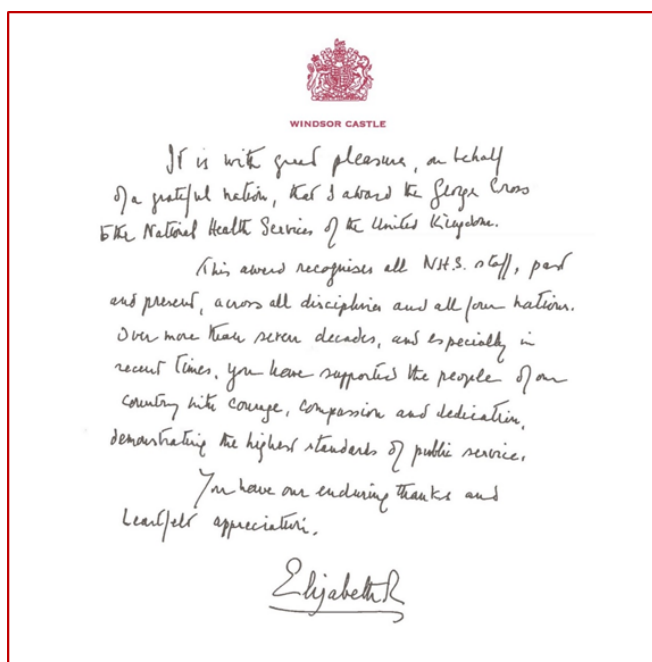 WINDSOR CASTLE
It is with great pleasure, on behalf
of a grateful nation, that I award the George Cross
to the National Health Services of the United Kingdom.
This award recognises all N.H.S. staff, past
and present, across all disciplines and all four nations.
Over more than seven decades, and especially in
recent times, you have supported the people of our
country with courage, compassion and dedication,
demonstrating the highest standards of public service.
You have our enduring thanks and
heartfelt appreciation.
Elizabeth R